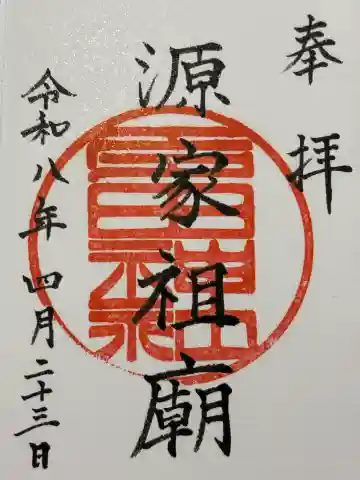 奉拝
源家祖廟
令和八年四月二十三日